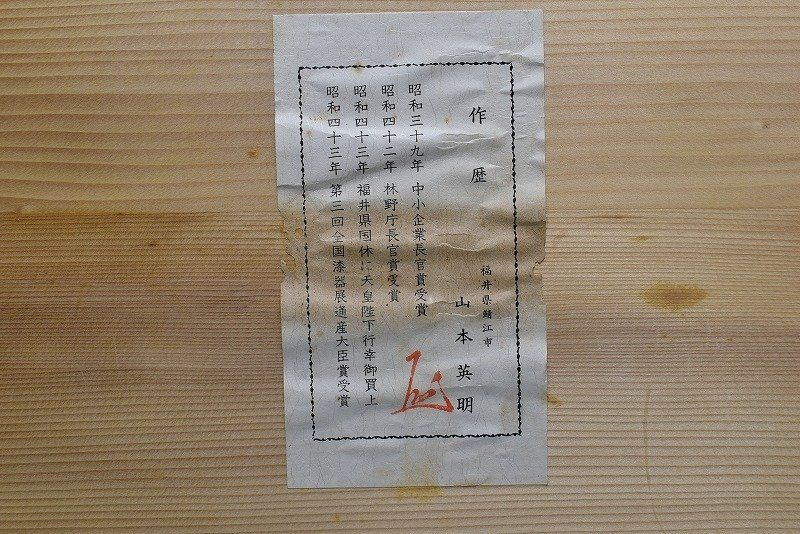 作歴
福井県鯖江市
山本英明
昭和三十九年 中小企業長官賞受賞
昭和四十二年 林野庁長官賞受賞
昭和四十三年 福井県国休に天皇陛下行幸御買上
昭和四十三年 第三回全国漆器展通産大臣賞受賞